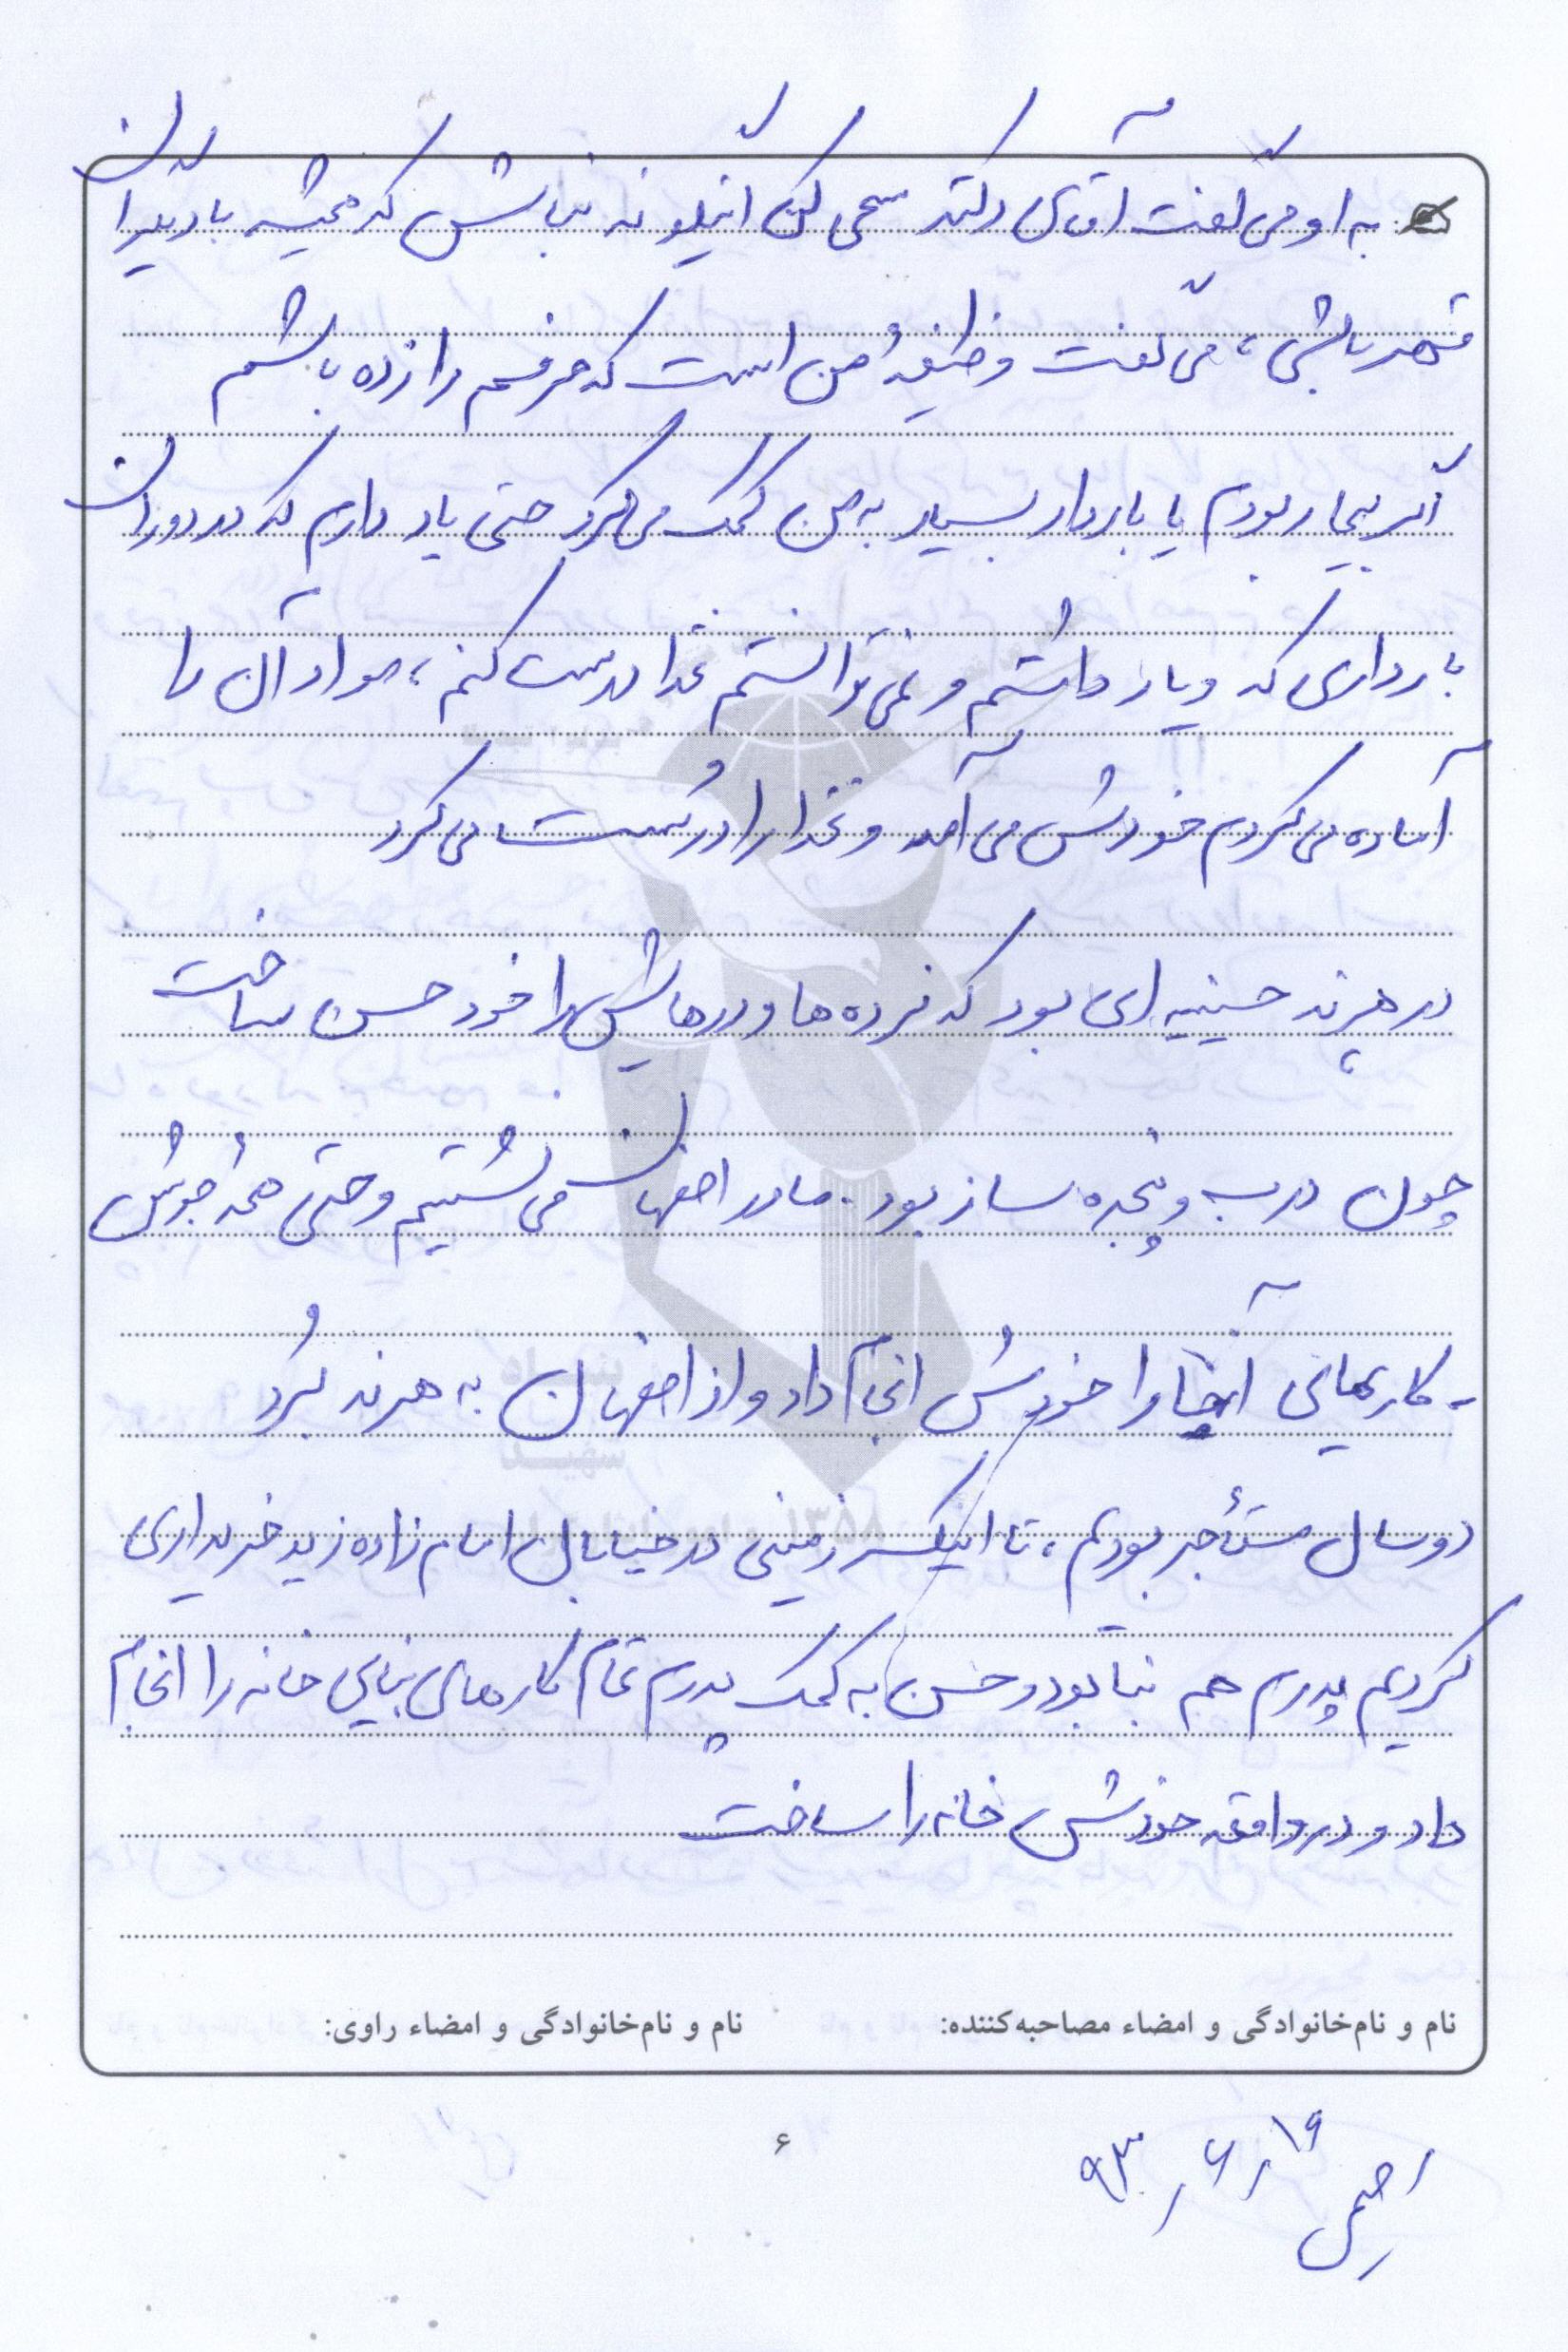 به او می گفت آقای دکتر سعی کن اینگونه نباش که همیشه با دیگران
قهر باشی، می گفت وظیفهٔ من است که حرفم را زده باشم
اگر بیمار بودم یا باردار بسیار به من کمک می کرد حتی یاد دارم که در دوران
بارداری که ویار داشتم و نمی توانستم غذا درست کنم، مواد آن را
آماده می کردم خودش می آمد و غذا را درست می کرد
در هرند حسینیه ای بود که نرده ها و درهایش را خود حسن ساخت
چون درب و پنجره ساز بود. ما در اصفهان می نشستیم و حتی همهٔ جوش
- کاریهای آنجا را خودش انجام داد و از اصفهان به هرند بُرد
دو سال مستأجر بودیم، تا اینکه زمینی در خیابان امام زاده زید خریداری
کردیم پدرم هم بنا بود و حسن به کمک پدرم تمام کارهای بنایی خانه را انجام
داد و در واقع خودش خانه را ساخت
نام و نام‌خانوادگی و امضاء مصاحبه‌کننده: نام و نام‌خانوادگی و امضاء راوی:
۶
۹۳/۶/۱۹
بنیاد
شهید
۱۳۵۸